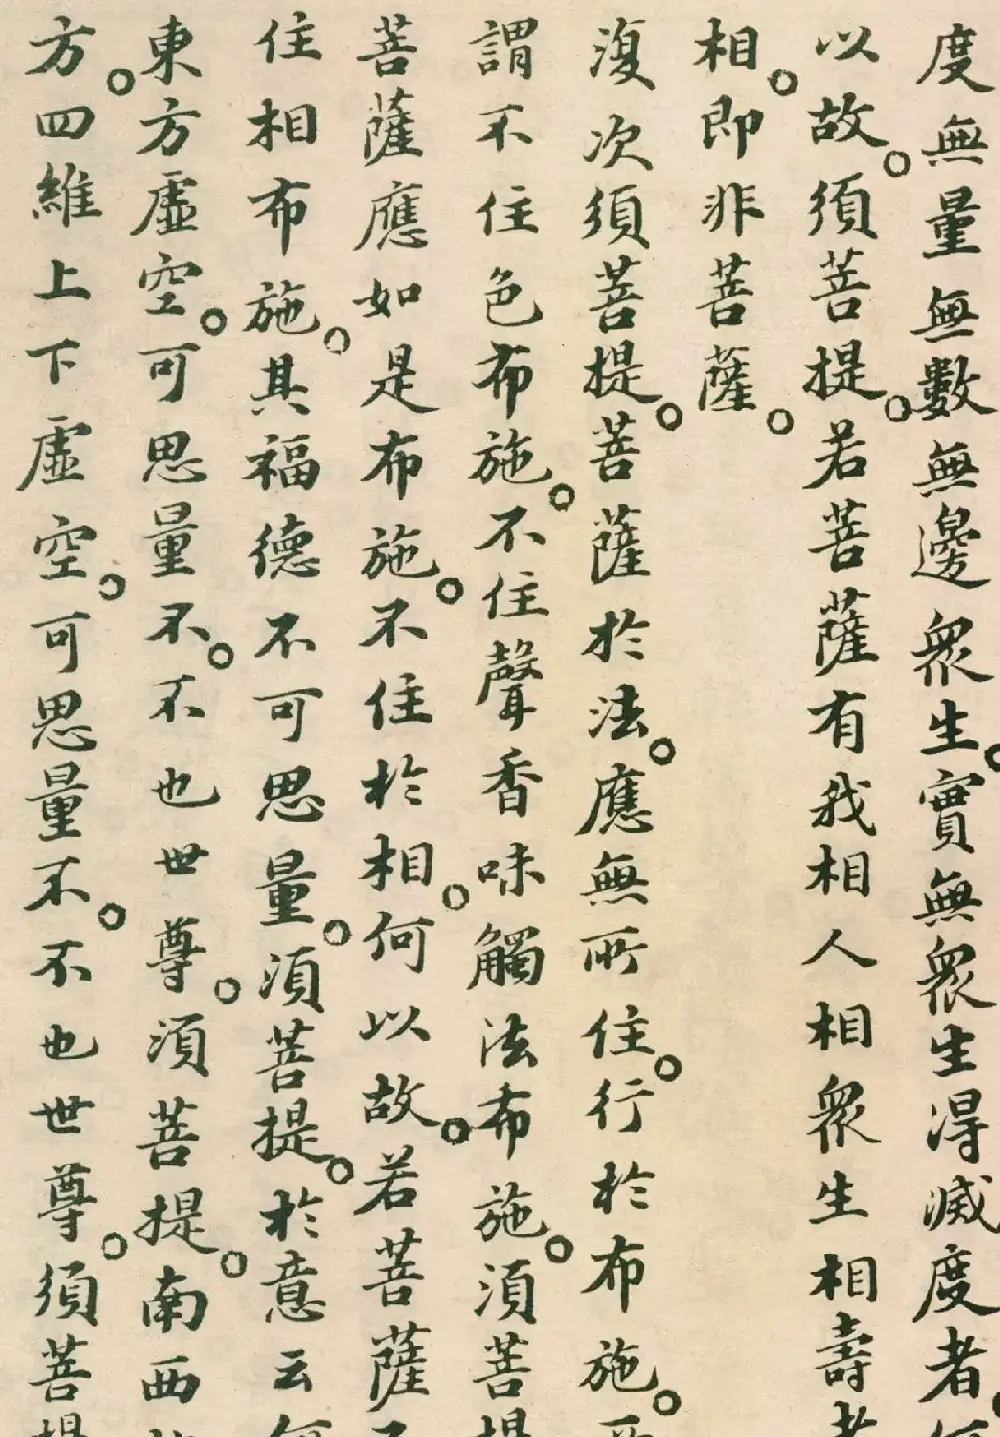 度無量無數無邊衆生。實無衆生得滅度者。何
以故。須菩提。若菩薩有我相人相衆生相壽者
相。即非菩薩。
復次須菩提。菩薩於法。應無所住。行於布施。所
謂不住色布施。不住聲香味觸法布施。須菩提
菩薩應如是布施。不住於相。何以故。若菩薩不
住相布施。其福德不可思量。須菩提。於意云何
東方虛空。可思量不。不也世尊。須菩提。南西
方。四維上下虛空。可思量不。不也世尊。須菩提